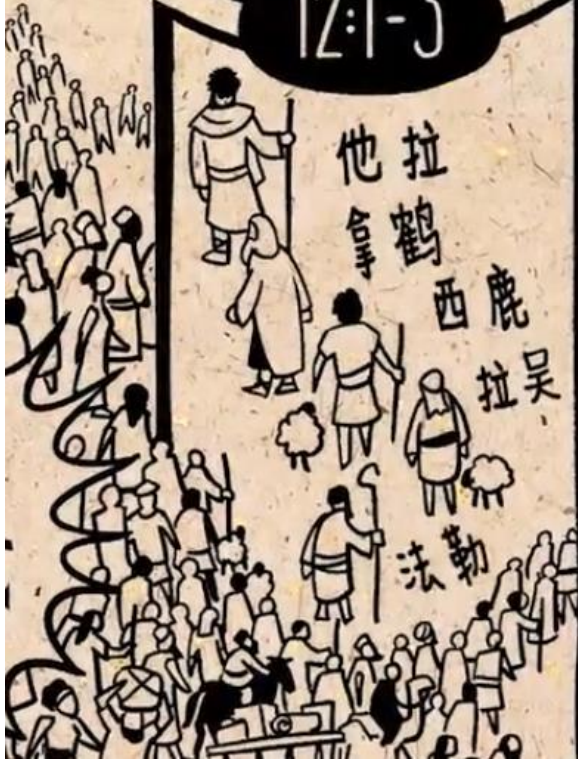 12:1-3
他拉
拿鹤
西鹿
拉吴
法勒